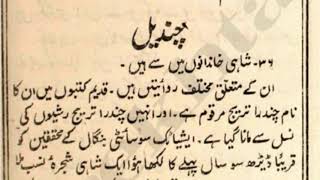 چندیل
۳۶۔ شاہی خاندانوں میں سے ہیں۔
ان کے متعلق مختلف روائتیں ہیں۔ قدیم کتبوں میں ان کا
نام چندرا تریج مرقوم ہے۔ اور انہیں چندرا تریج رشیوں کی
نسل سے مانا گیا ہے۔ ایشیاٹک سوسائٹی بنگال کے محققین کو
قریباً ڈیڑھ سو سال پہلے کا لکھا ہؤا ایک شاہی شجرۂ نسب ملا